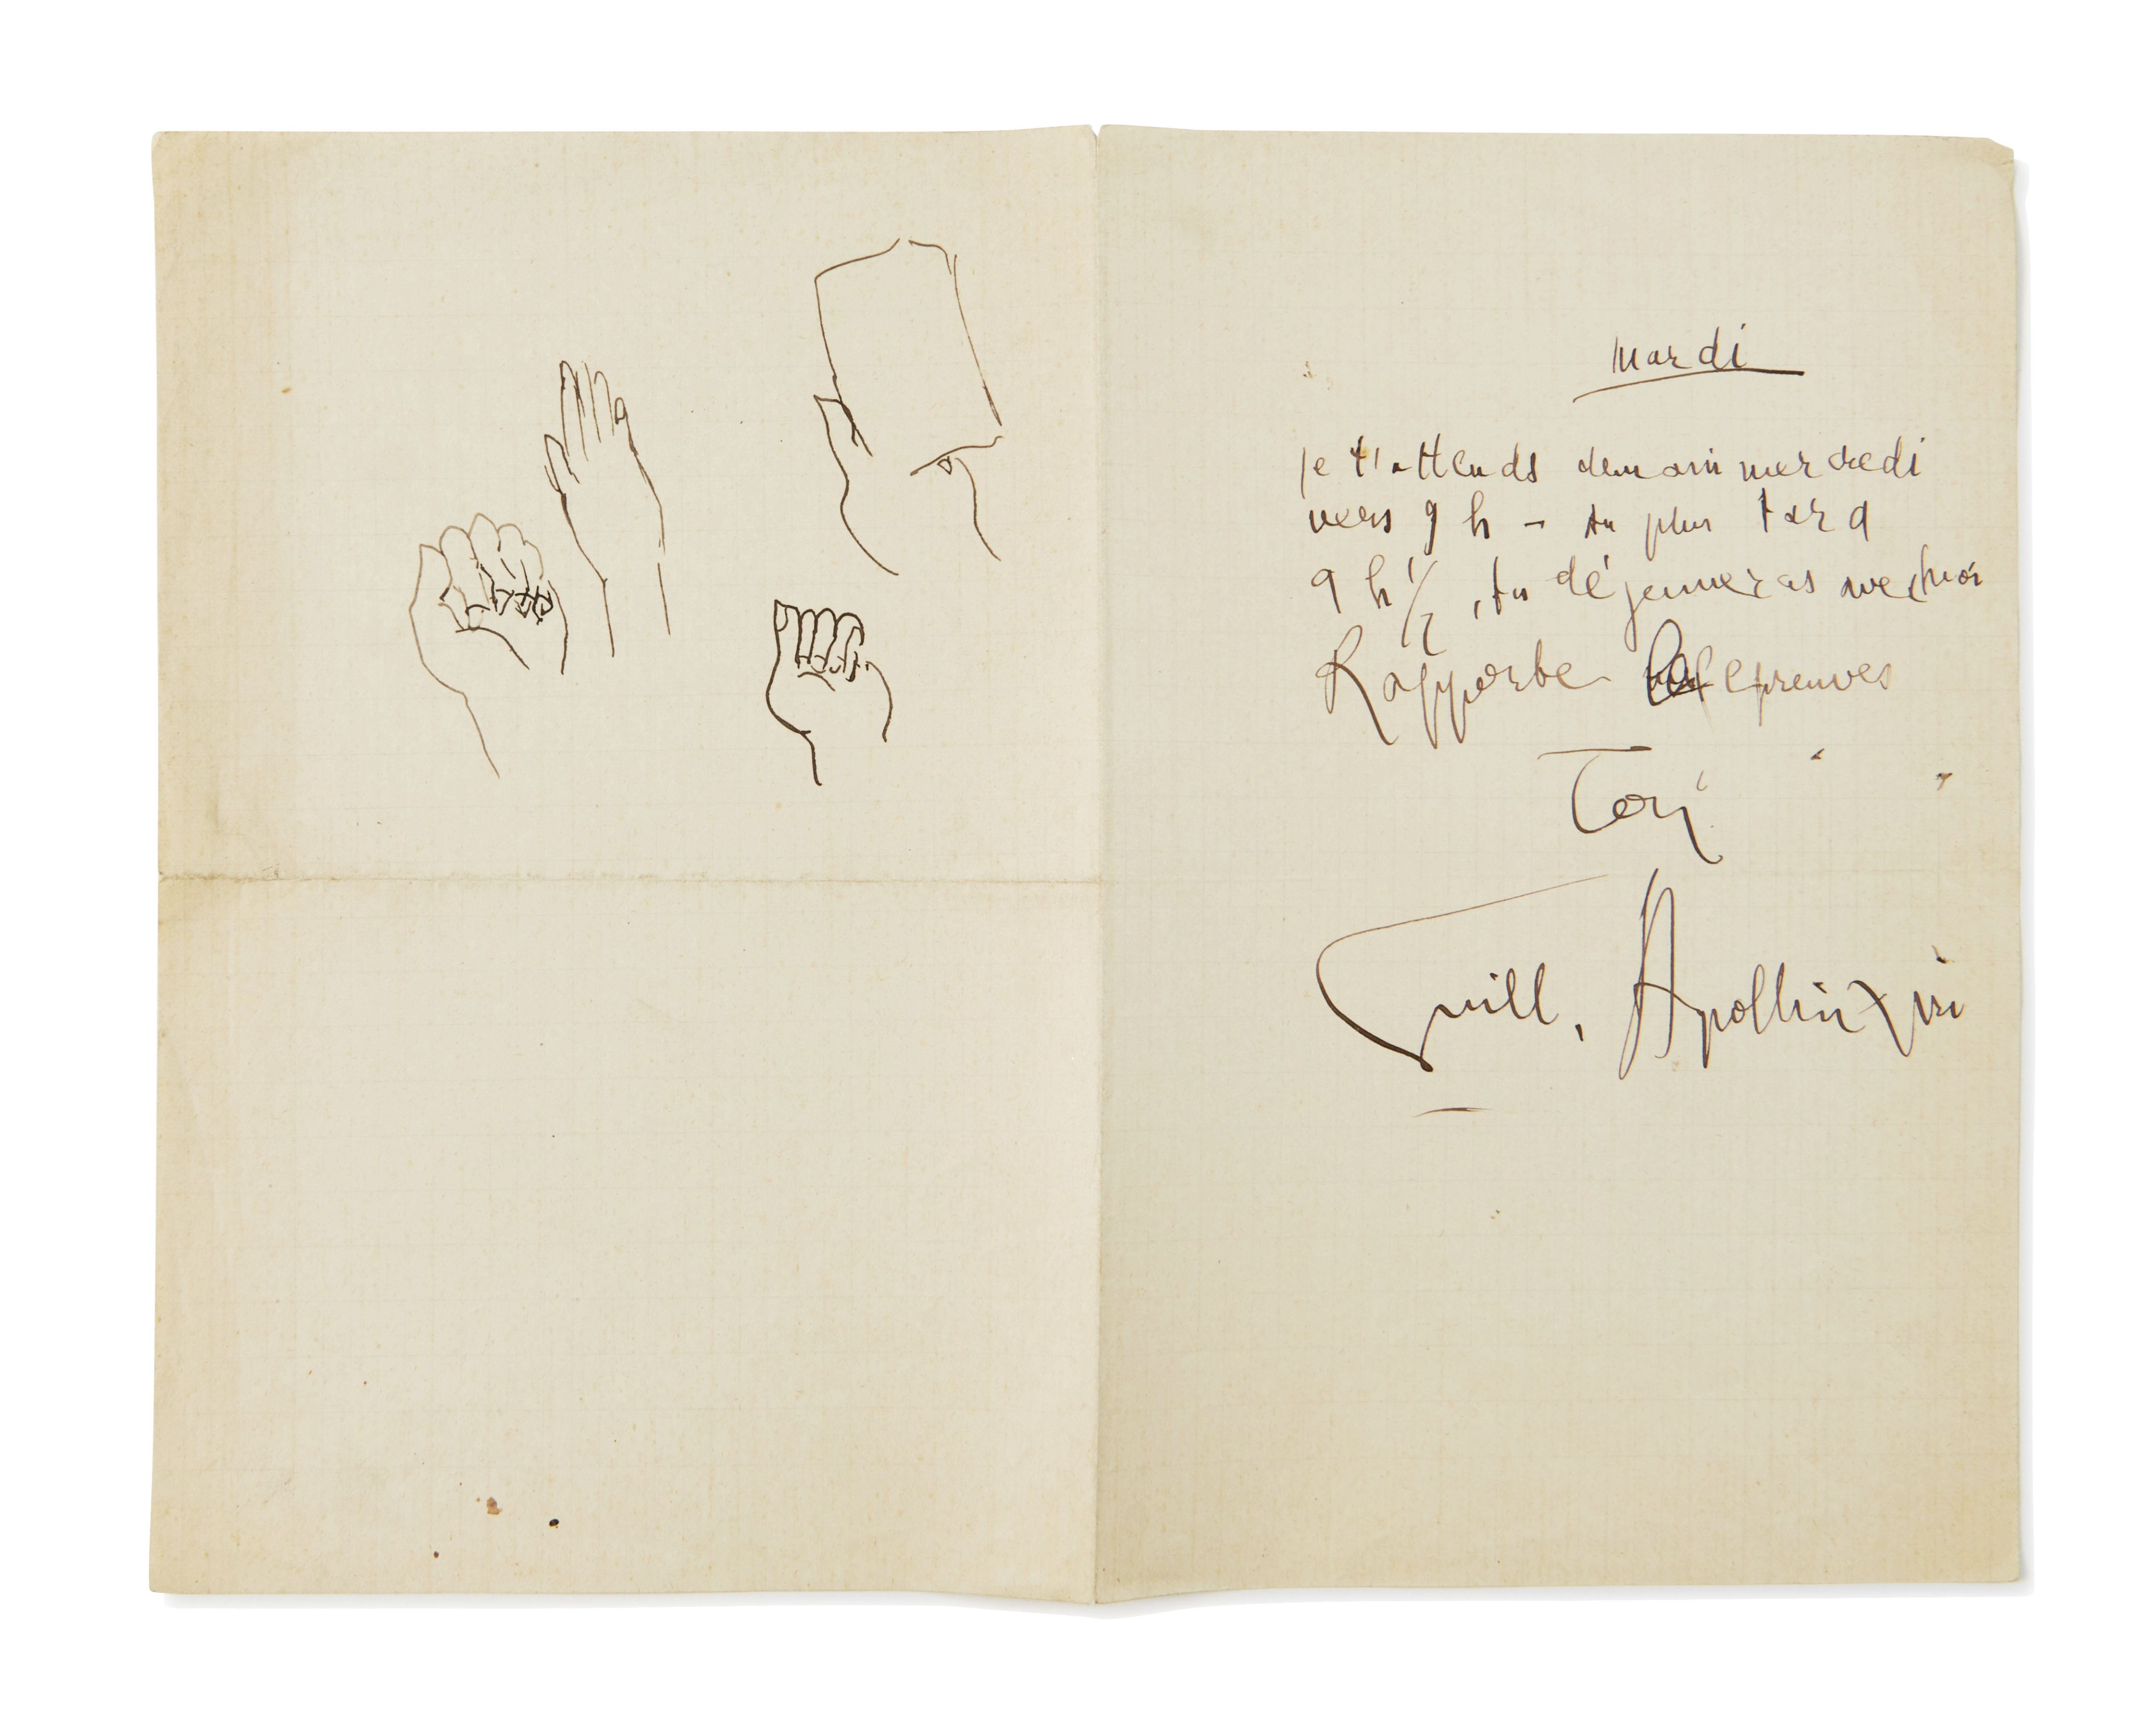 Mardi
je t'attends demain mercredi
vers 9 h - au plus tard
9 h 1/2, tu déjeuneras avec moi
Rapporte les epreuves
Ton
Guill. Apollinaire